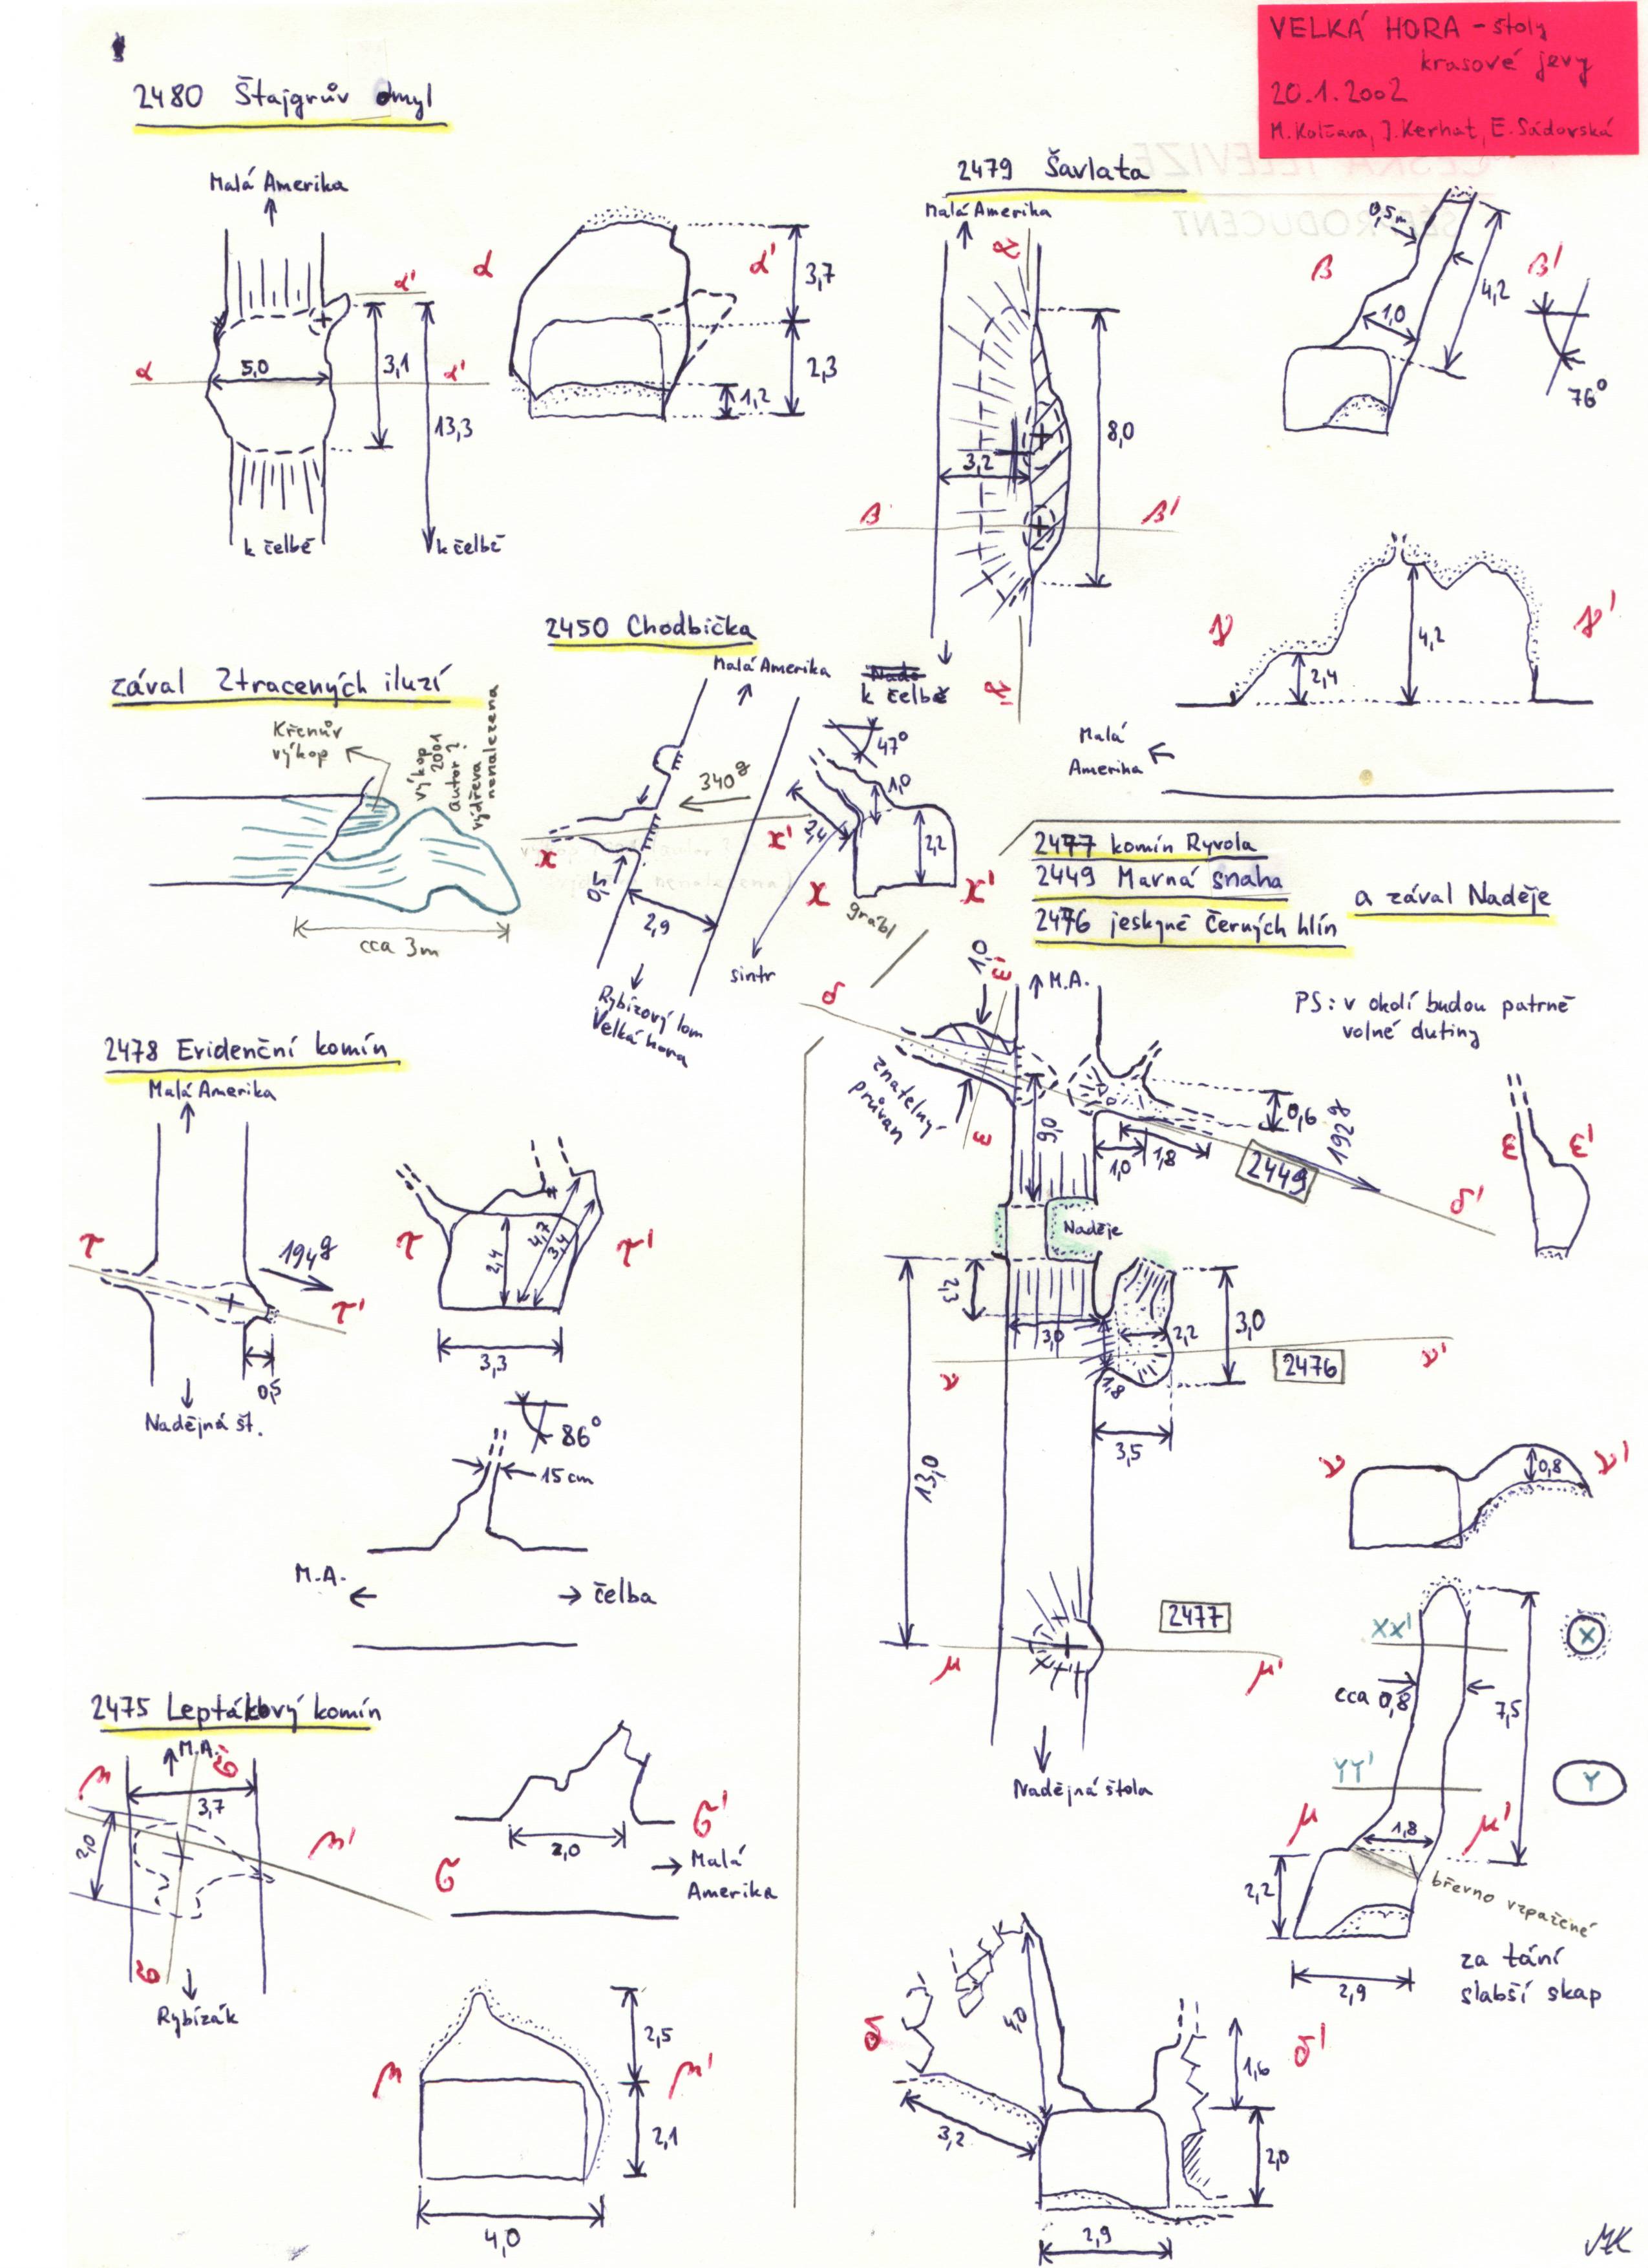 VELKÁ HORA - štoly
krasové jevy
20.1.2002
M. Kolčava, J. Kerhat, E. Sádovská
2480 Štajgrův omyl
Malá Amerika
α'
α
5,0
3,1
α'
13,3
k čelbě
k čelbě
α
α'
3,7
2,3
1,2
2479 Šavlata
Malá Amerika
γ
8,0
3,2
β
β'
γ'
k čelbě
0,5m
β
β'
4,2
1,0
76°
γ
γ'
4,2
2,4
Malá
Amerika
zával Ztracených iluzí
Křenův
výkop
výkop
2001
autor?
výdřeva
nenalezena
cca 3m
2450 Chodbička
Malá Amerika
340g
x
x'
0,5
2,9
Rybízový lom
Velká hora
47°
1,0
2,4
2,2
x
x'
grázl
sintr
2477 komín Ryvola
2449 Marná snaha
2476 jeskyně Černých hlín
a zával Naděje
PS: v okolí budou patrně
volné dutiny
δ
1,0
ε'
M.A.
znatelný
průvan
ε
9,0
0,6
192g
1,0
1,8
2449
δ'
ε
ε'
Naděje
2,3
3,0
2,2
3,0
ν
1,8
2476
ν'
3,5
13,0
ν
0,8
ν'
2477
μ
μ'
Nadějná štola
XX'
X
cca 0,8
7,5
YY'
Y
μ
1,8
μ'
2,2
břevno vzpažené
2,9
za tání
slabší skap
δ
4,0
3,2
1,6
δ'
2,0
2,9
2478 Evidenční komín
Malá Amerika
τ
194g
τ'
0,5
Nadějná št.
τ
2,4
4,7
3,4
τ'
3,3
86°
15 cm
M.A.
čelba
2475 Leptákový komín
M.A.
σ'
3,7
2,0
σ
Rybízák
2,0
σ'
σ
Malá
Amerika
2,5
2,1
4,0
MK